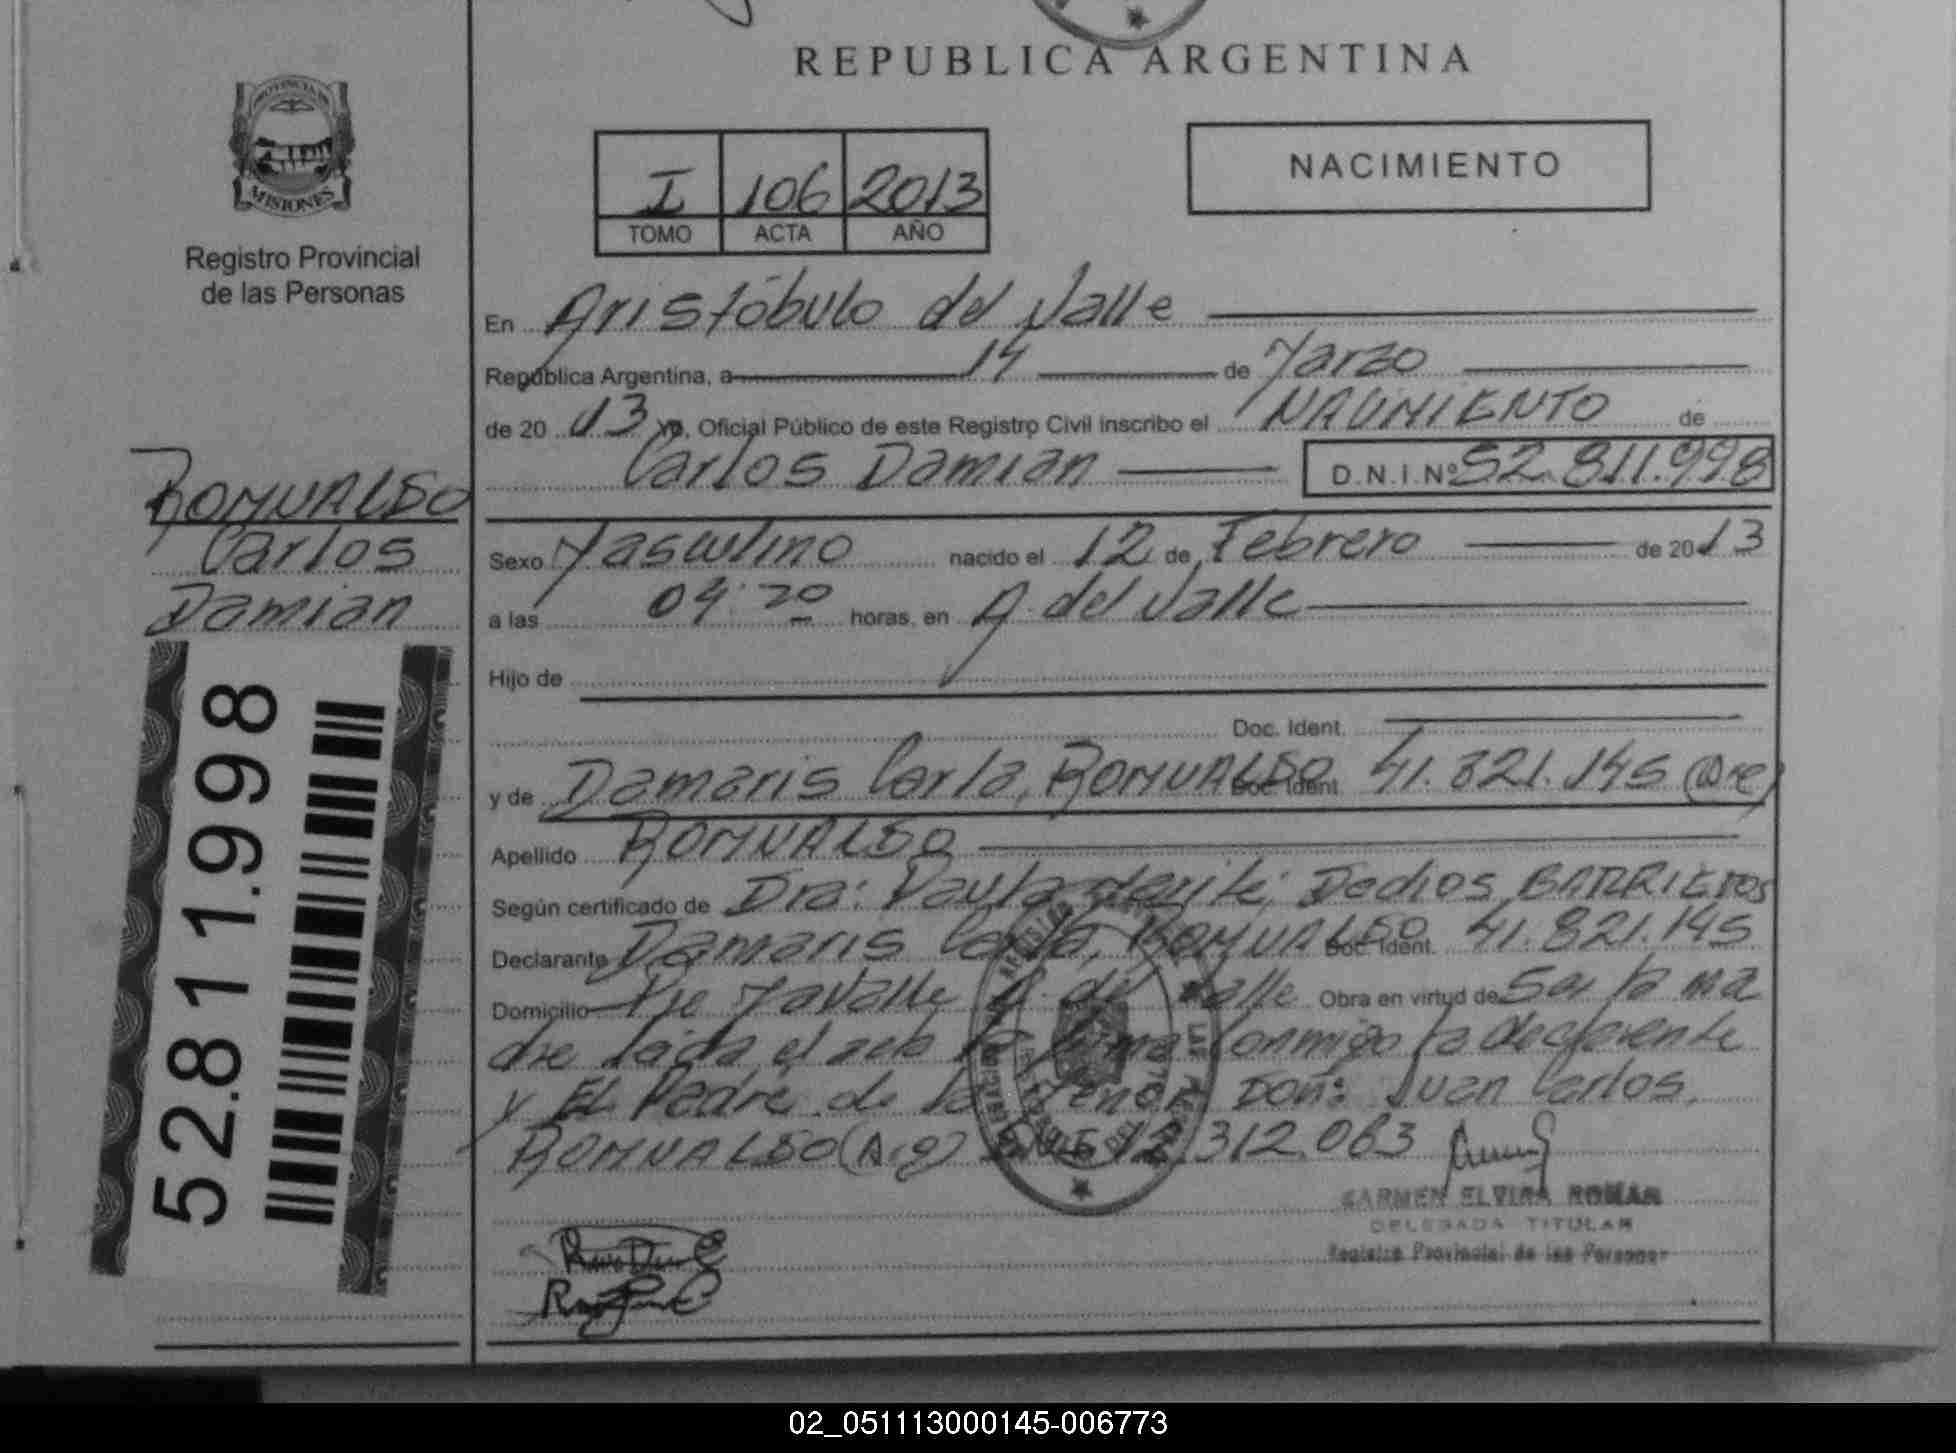 REPUBLICA ARGENTINA
PROVINCIA DE
MISIONES
Registro Provincial
de las Personas
I 106 2013
TOMO ACTA AÑO
NACIMIENTO
En Aristóbulo del Valle
República Argentina, a 14 de Marzo
de 20 13 yo, Oficial Público de este Registro Civil inscribo el NACIMIENTO de
Carlos Damian D.N.I.Nº 52.811.998
ROMUALDO
Carlos
Damian
52.811.998
Sexo Masculino nacido el 12 de Febrero de 20 13
a las 04:20 horas, en A. del Valle
Hijo de
Doc. Ident.
y de Damaris Carla, ROMUALDO Doc. Ident. 41.821.145 (Dre)
Apellido ROMUALDO
Según certificado de Dra: Paula Dedios BARRIEROS
Declarante Damaris Carla, ROMUALDO Doc. Ident. 41.821.145
Domicilio A. del Valle Obra en virtud de Ser la ma
dre leida el acta la firma conmigo la declarante
y EL Padre de la menor Don: Juan Carlos,
ROMUALDO (Arg) 12.312.063
CARMEN ELVIRA ROMAN
DELEGADA TITULAR
Registro Provincial de las Personas
02_051113000145-006773